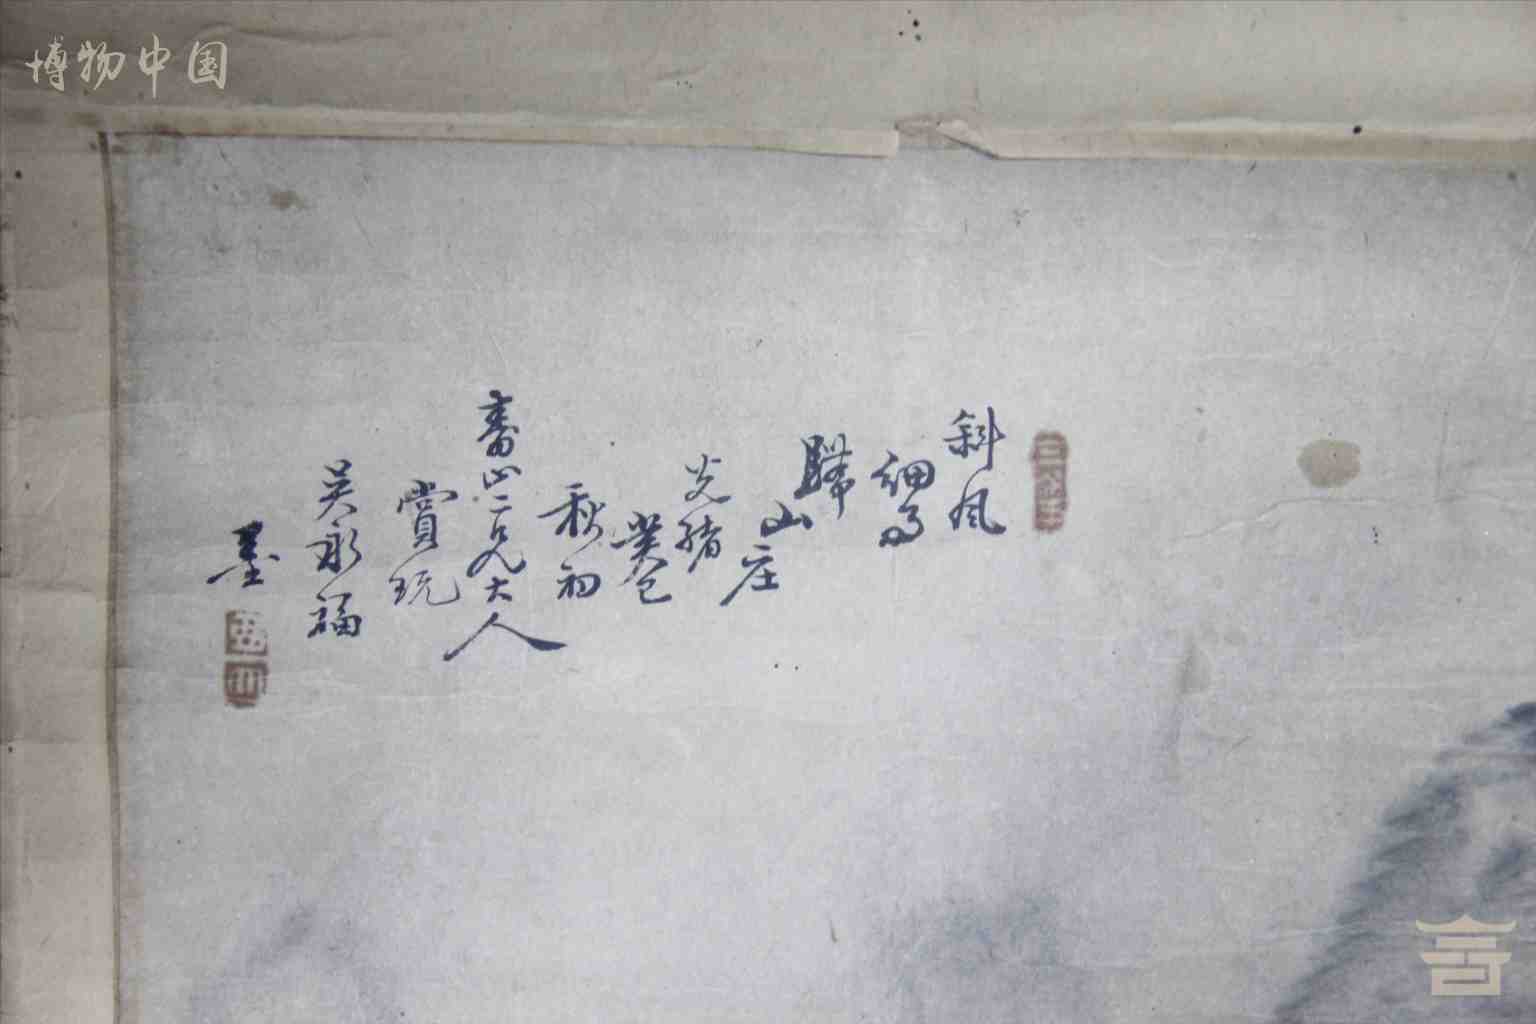 博物中国
斜风
细雨
归
山
庄
光绪
癸巳
秋初
寿山二兄大人
赏玩
吴永福
墨